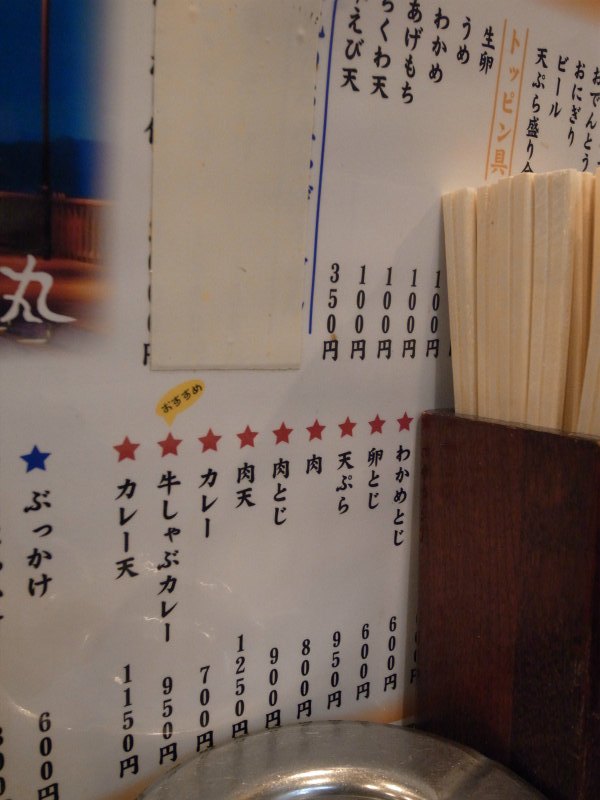 おにぎり
ビール
天ぷら盛り
トッピン具
生卵
うめ
わかめ 100円
あげもち 100円
ちくわ天 100円
えび天 350円
丸
わかめとじ 600円
卵とじ 600円
天ぷら 950円
肉 800円
肉とじ 900円
肉天 1250円
カレー 700円
おすすめ
牛しゃぶカレー 950円
カレー天 1150円
ぶっかけ 600円